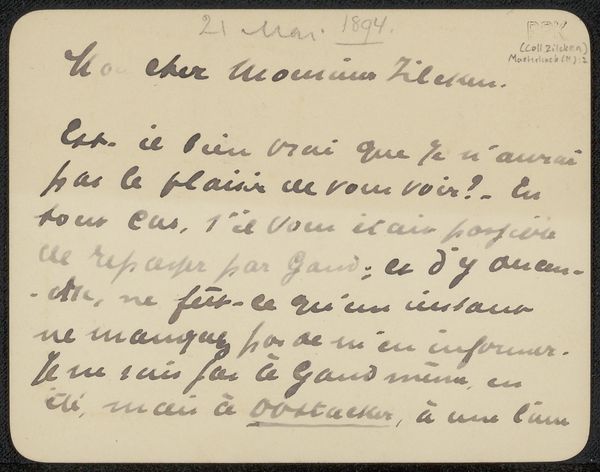 21 Mai. 1894.
PPK
(Coll Zilcken)
Mon cher Monsieur Zilcken.
Est-il bien vrai que je n'aurai
pas le plaisir de vous voir? - En
tout cas, s'il vous était possible
de repasser par Gand; et d'y
ne fût-ce qu'un instant
ne manquez pas de m'en informer.
Je ne suis pas à Gand même, en
été, mais à Oostacker, à une